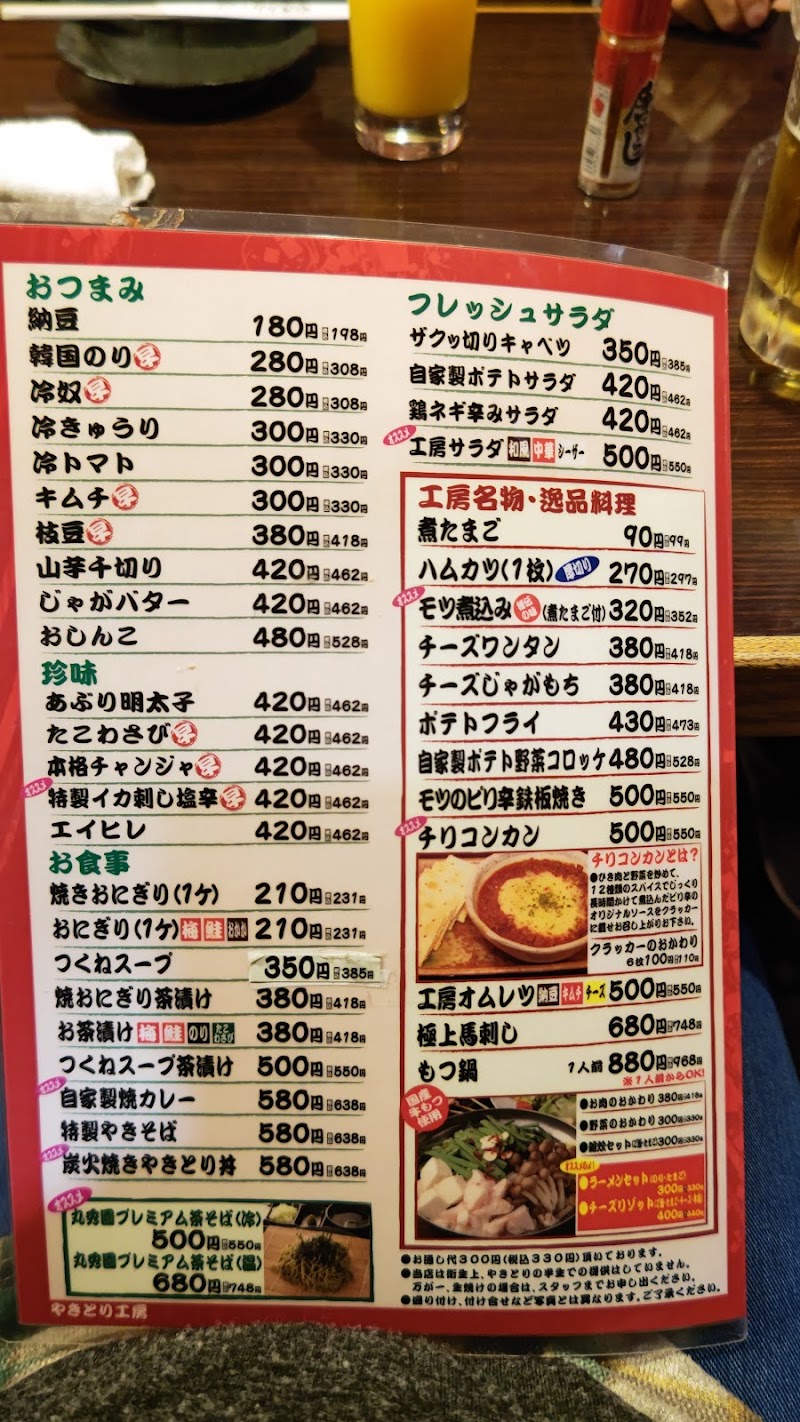 おつまみ
納豆 180円 税込198円
韓国のり 早 280円 税込308円
冷奴 早 280円 税込308円
冷きゅうり 300円 税込330円
冷トマト 300円 税込330円
キムチ 早 300円 税込330円
枝豆 早 380円 税込418円
山芋千切り 420円 税込462円
じゃがバター 420円 税込462円
おしんこ 480円 税込528円
珍味
あぶり明太子 420円 税込462円
たこわさび 早 420円 税込462円
本格チャンジャ 早 420円 税込462円
オススメ
特製イカ刺し塩辛 早 420円 税込462円
エイヒレ 420円 税込462円
お食事
焼きおにぎり(1ケ) 210円 税込231円
おにぎり(1ケ) 梅 鮭 おかか 210円 税込231円
つくねスープ 350円 税込385円
焼おにぎり茶漬け 380円 税込418円
お茶漬け 梅 鮭 のり たこわさび 380円 税込418円
つくねスープ茶漬け 500円 税込550円
オススメ
自家製焼カレー 580円 税込638円
特製やきそば 580円 税込638円
オススメ
炭火焼きやきとり丼 580円 税込638円
オススメ
丸秀園プレミアム茶そば(冷)
500円 税込550円
丸秀園プレミアム茶そば(温)
680円 税込748円
やきとり工房
フレッシュサラダ
ザクッ切りキャベツ 350円 税込385円
自家製ポテトサラダ 420円 税込462円
鶏ネギ辛みサラダ 420円 税込462円
オススメ
工房サラダ 和風 中華 シーザー 500円 税込550円
工房名物・逸品料理
煮たまご 90円 税込99円
ハムカツ(1枚) 厚切り 270円 税込297円
オススメ
モツ煮込み (煮たまご付) 320円 税込352円
チーズワンタン 380円 税込418円
チーズじゃがもち 380円 税込418円
ポテトフライ 430円 税込473円
自家製ポテト野菜コロッケ 480円 税込528円
モツのピリ辛鉄板焼き 500円 税込550円
オススメ
チリコンカン 500円 税込550円
チリコンカンとは?
●ひき肉と野菜を炒めて、
12種類のスパイスでじっくり
長時間かけて煮込んだピリ辛の
オリジナルソースをクラッカー
に載せお召し上がり下さい。
クラッカーのおかわり
6枚100円 税込110円
工房オムレツ 納豆 キムチ チーズ 500円 税込550円
極上馬刺し 680円 税込748円
もつ鍋 1人前 880円 税込968円
※1人前からOK!
国産
牛もつ
使用
●お肉のおかわり 380円 税込418円
●野菜のおかわり 300円 税込330円
●雑炊セット(ご飯・たまご) 300円 税込330円
オススメの〆!
●ラーメンセット(のり・たまご)
300円 330円
●チーズリゾット
400円 440円
●お通し代300円(税込330円)頂いております。
●当店は衛生上、やきとりの半生での提供はしていません。
万が一、生焼けの場合は、スタッフまでお申し出ください。
●盛り付け、付け合せなど写真とは異なります。ご了承ください。